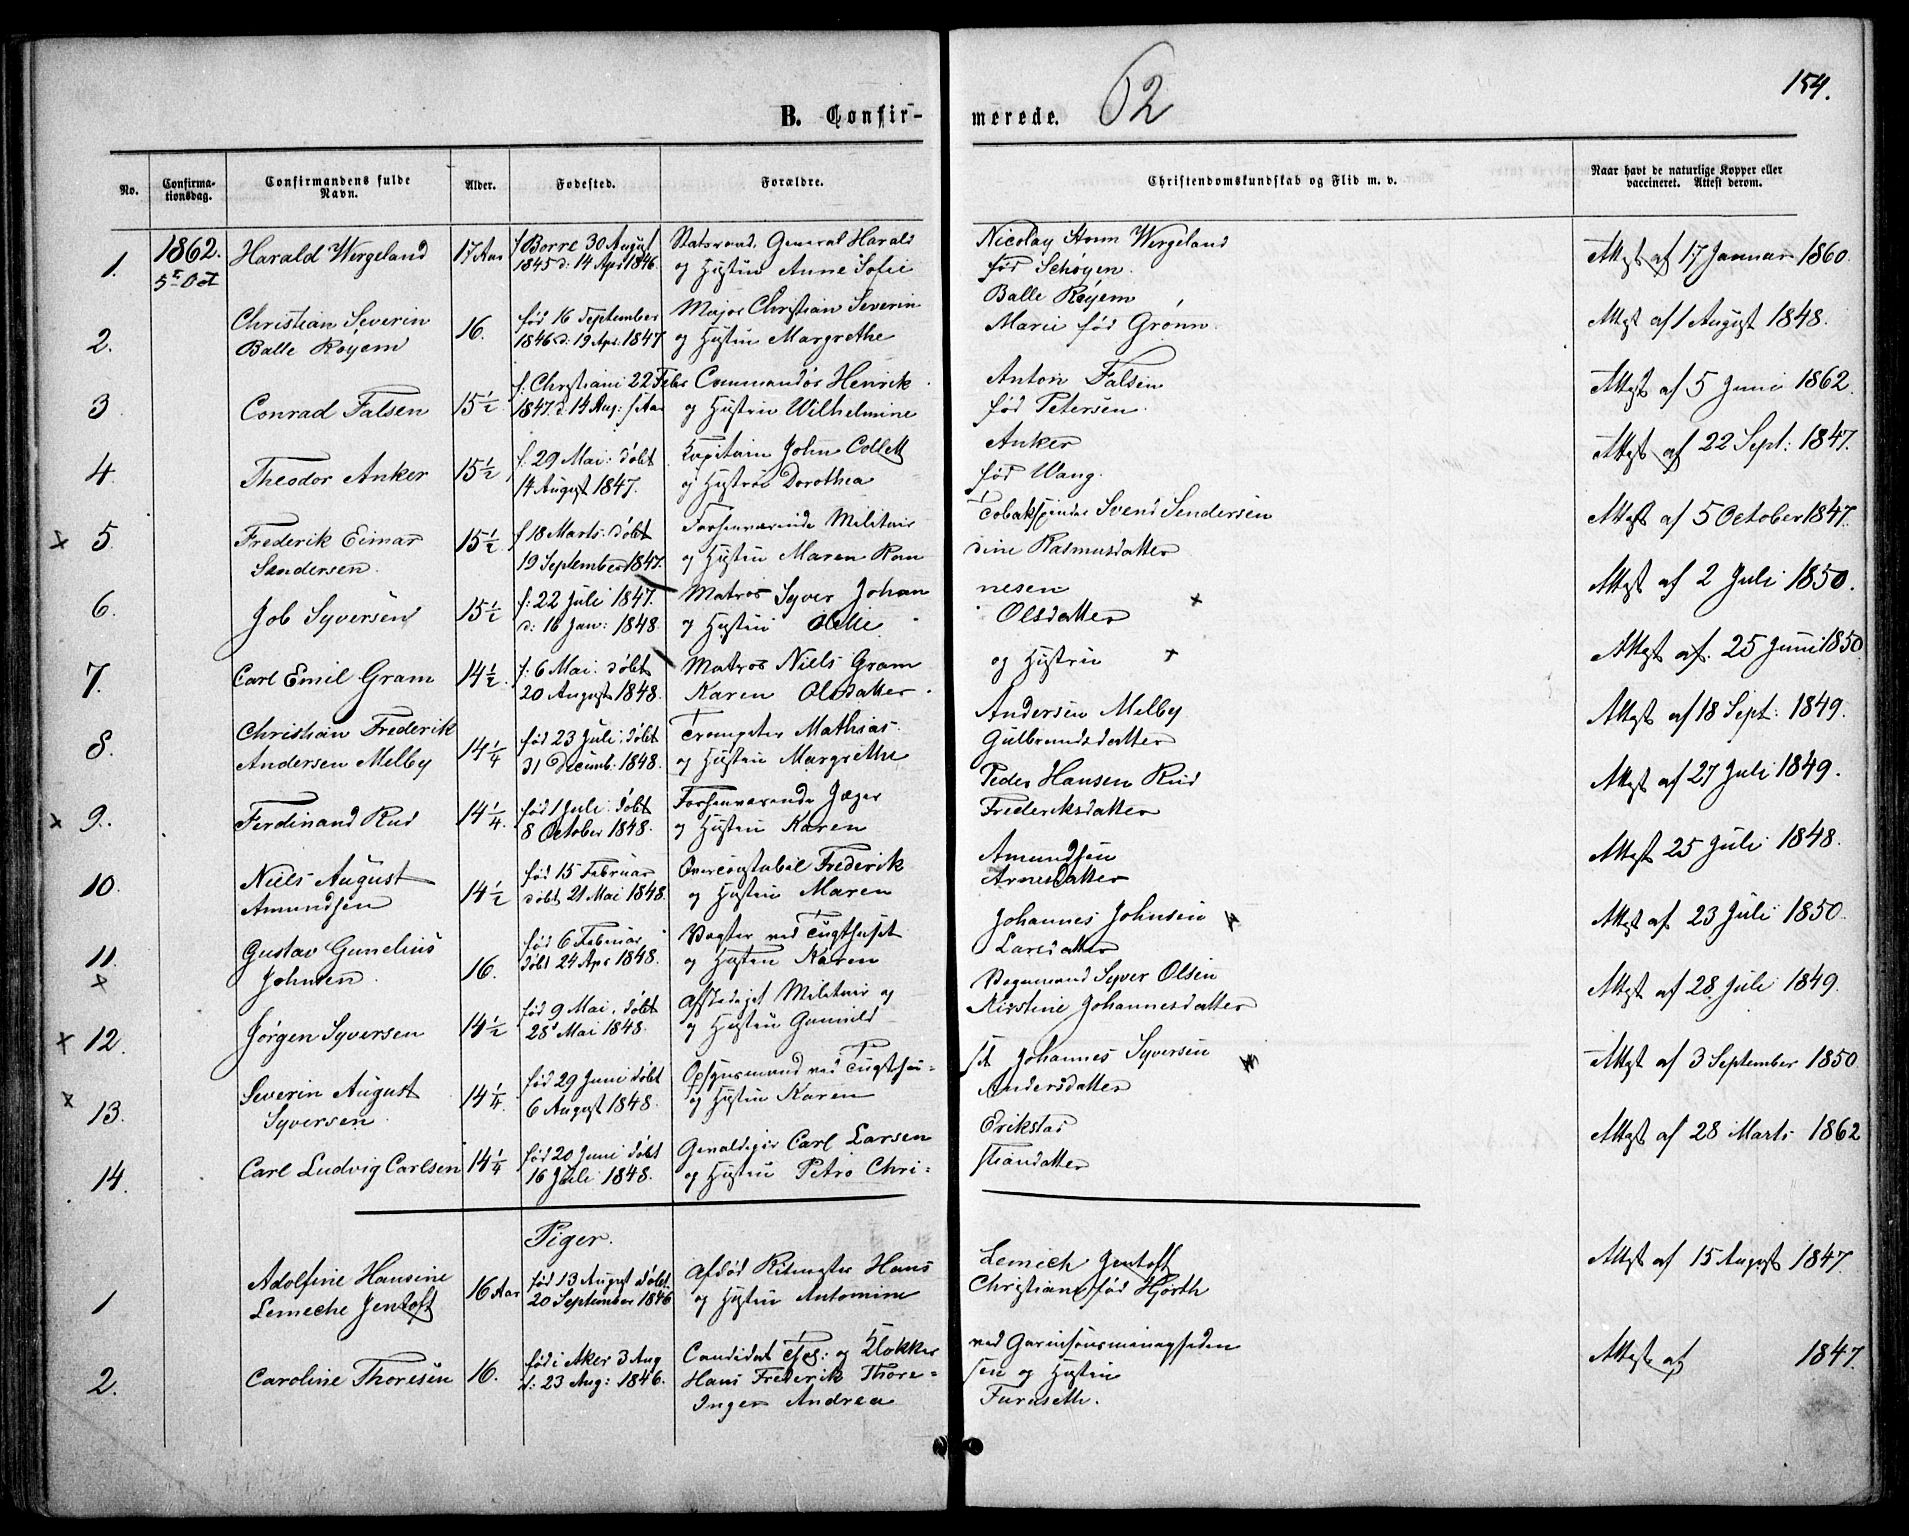 154.
B. Confir-
merede. 62
No.
Confirma-
tionsdag.
Confirmandens fulde
Navn.
Alder.
Fødested.
Forældre.
Christendomskundskab og Flid m. v.
Naar havt de naturlige Kopper eller
vaccineret. Attest derom.
1. 1862. Harald Wergeland 17 Aar f. Borre 30 August Statsraad, General Harald Nicolay Storm Wergeland Attest af 17 Januar 1860.
5te Oct 1845 d: 14 Apr 1846. og Hustru Anne Sofie født Schøyen.
2. Christian Severin 16. født 16 September Major Christian Severin Balle Røyem Attest af 1 August 1848.
Balle Røyem 1846 d: 19 Apr. 1847 og Hustru Margrethe Marie født Grønn.
3 Conrad Falsen 15 1/2 f. Christiani 22 Febr Commandør Henrik Anton Falsen Attest af 5 Juni 1862.
1847. d. 14 Aug. s. Aar og Hustru Wilhelmine født Petersen.
4. Theodor Anker 15 1/2 f. 29 Mai: døbt Kapitain John Collett Anker Attest af 22 Sept: 1847.
14 August 1847. og Hustru Dorothea født Wang.
x 5. Frederik Eimar 15 1/2 f 18 Marts: døbt Forhenværende Militair Tobakspinder Svend Sendersen Attest af 5 October 1847.
Sandersen. 19 September 1847. og Hustru Maren Ran dine Rasmusdatter
6. Job Syversen 15 1/2 f: 22 Juli 1847. Matros Syver Johan nesen x Attest af 2 Juli 1850.
d: 16 Jan: 1848 og Hustru Olette Olsdatter
7. Carl Emil Gram 14 1/2. f: 6 Mai: døbt Matros Niels Gram og Hustru x Attest af. 25 Juni 1850.
20 August 1848. Karen Olsdatter.
8. Christian Frederik 14 1/4 født 23 Juli, døbt Trompeter Mathias Andersen Melby Attest af 18 Sept: 1849.
Andersen Melby 31 Decemb. 1848. og Hustru Margrethe Gulbrandsdatter
x 9. Ferdinand Rud 14 1/4. født 1 Juli: døbt Forhenværende Jæger Peder Hansen Rud Attest af 27 Juli 1849.
8 October 1848. og Hustru Karen Frederiksdatter
10. Niels August 14 1/2 født 15 Februar Overconstabel Frederik Amundsen Attest 25 Juli 1848.
Amundsen døbt 21 Mai 1848. og Hustru Maren Arnesdatter
11. Gustav Gunelius 16. født 6 Februar Vægter ved Tugthuset Johannes Johnsen x Attest af 23 Juli 1850.
x Johnsen. døbt 24 Apr 1848. og Hustru Karen Larsdatter
x 12. Jørgen Syversen 14 1/2 født 9 Mai, døbt Afskediget Militair og Vognmand Syver Olsen Attest af 28 Juli 1849.
28 Mai 1848. og Hustru Gunnild Kirstine Johannesdatter
x 13. Severin August 14 1/4. født 29 Juni døbt Opsynsmand ved Tugthu- set Johannes Syversen x Attest af 3 September 1850.
Syversen. 6 August 1848. og Hustru Karen Andersdatter
14. Carl Ludvig Carlsen 14 1/4 født 20 Juni døbt Gevaldiger Carl Larsen Erikstad Attest af 28 Marts 1862
16 Juli 1848. og Hustru Petro Chri- stiandatter
Piger.
1 Adolfine Hansine 16 Aar født 13 August døbt Afdød Ritmester Hans Lemich Jentoft Attest af 15 August 1847.
Lemeche Jentoft 20 September 1846 og Hustru Antomine Christiane født Hjorth
2. Caroline Thoresen 16. født i Aker 3 Aug Candidat Theol: og Klokker ved Garnisonsmenagheden Attest af 1847.
d: 23 Aug: 1846. Hans Frederik Thore- sen og Hustru
Inger Andrea Furuseth.